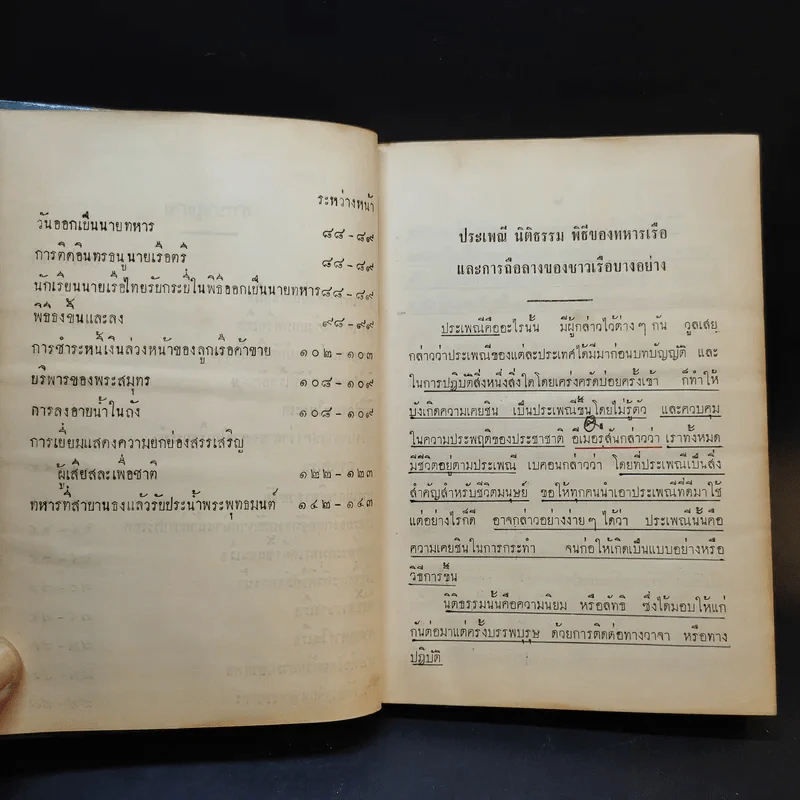 ระหว่างหน้า
วันออกเป็นนายทหาร ๘๘-๘๙
การติดอินทรธนูนายเรือตรี ๘๘-๘๙
นักเรียนนายเรือไทยรับกระบี่ในพิธีออกเป็นนายทหาร ๘๘-๘๙
พิธีธงขึ้นและลง ๙๘-๙๙
การชำระหนี้เงินล่วงหน้าของลูกเรือค้าขาย ๑๐๒-๑๐๓
บริพารของพระสมุทร ๑๐๘-๑๐๙
การลงอาบน้ำในถัง ๑๐๘-๑๐๙
การเยี่ยมแสดงความยกย่องสรรเสริญ
ผู้เสียสละเพื่อชาติ ๑๒๒-๑๒๓
ทหารที่สาบานธงแล้วรับประน้ำพระพุทธมนต์ ๑๔๒-๑๔๓
ประเพณี นิติธรรม พิธีของทหารเรือ
และการถือลางของชาวเรือบางอย่าง
ประเพณีคืออะไรนั้น มีผู้กล่าวไว้ต่างๆ กัน วูลเสย
กล่าวว่าประเพณีของแต่ละประเทศได้มีมาก่อนบทบัญญัติ และ
ในการปฏิบัติสิ่งหนึ่งสิ่งใดโดยเคร่งครัดบ่อยครั้งเข้า ก็ทำให้
บังเกิดความเคยชิน เป็นประเพณีขึ้นโดยไม่รู้ตัว และควบคุม
ในความประพฤติของประชาชาติ อีเมอรสันกล่าวว่า เราทั้งหมด
มีชีวิตอยู่ตามประเพณี เบคอนกล่าวว่า โดยที่ประเพณีเป็นสิ่ง
สำคัญสำหรับชีวิตมนุษย์ ขอให้ทุกคนนำเอาประเพณีที่ดีมาใช้
แต่อย่างไรก็ดี อาจกล่าวอย่างง่ายๆ ได้ว่า ประเพณีนั้นคือ
ความเคยชินในการกระทำ จนก่อให้เกิดเป็นแบบอย่างหรือ
วิธีการขึ้น
นิติธรรมนั้นคือความนิยม หรือลัทธิ ซึ่งได้มอบให้แก่
กันต่อมาแต่ครั้งบรรพบุรุษ ด้วยการติดต่อทางวาจา หรือทาง
ปฏิบัติ